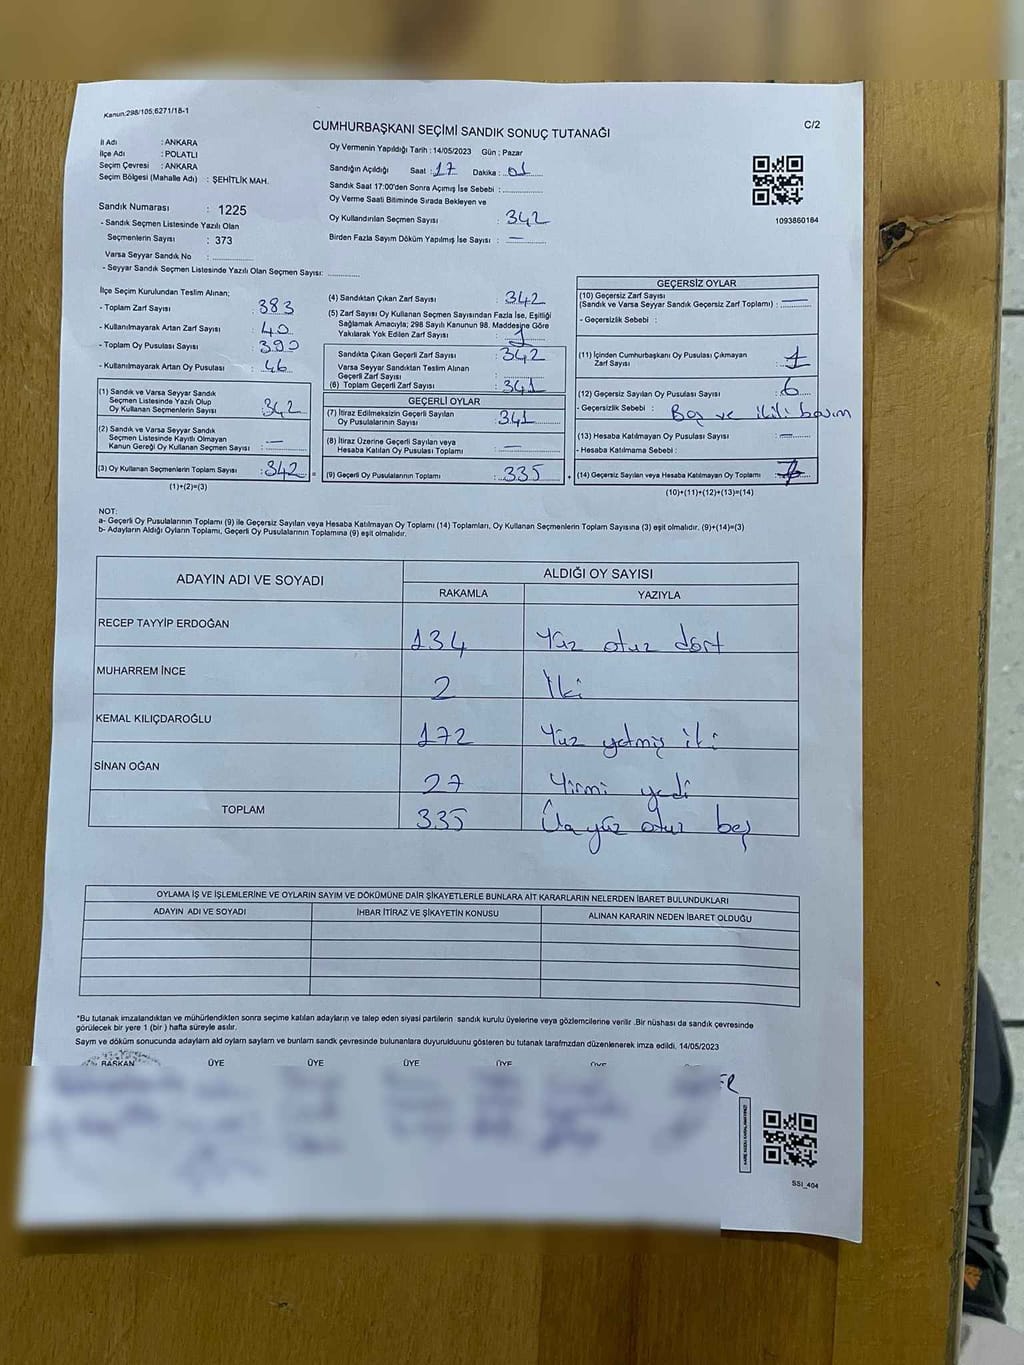 Kanun:298/105,6271/18-1
CUMHURBAŞKANI SEÇİMİ SANDIK SONUÇ TUTANAĞI
C/2
İl Adı : ANKARA
İlçe Adı : POLATLI
Seçim Çevresi : ANKARA
Seçim Bölgesi (Mahalle Adı) : ŞEHİTLİK MAH.
Sandık Numarası : 1225
- Sandık Seçmen Listesinde Yazılı Olan
Seçmenlerin Sayısı : 373
Varsa Seyyar Sandık No :
- Seyyar Sandık Seçmen Listesinde Yazılı Olan Seçmen Sayısı:
Oy Vermenin Yapıldığı Tarih : 14/05/2023 Gün : Pazar
Sandığın Açıldığı Saat : 17 Dakika : 01
Sandık Saat 17:00'den Sonra Açımış İse Sebebi :
Oy Verme Saati Bitiminde Sırada Bekleyen ve
Oy Kullandırılan Seçmen Sayısı : 342
Birden Fazla Sayım Döküm Yapılmış İse Sayısı : —
1093860184
İlçe Seçim Kurulundan Teslim Alınan;
- Toplam Zarf Sayısı : 383
- Kullanılmayarak Artan Zarf Sayısı : 40
- Toplam Oy Pusulası Sayısı : 390
- Kullanılmayarak Artan Oy Pusulası : 46
(1) Sandık ve Varsa Seyyar Sandık
Seçmen Listesinde Yazılı Olup
Oy Kullanan Seçmenlerin Sayısı : 342
(2) Sandık ve Varsa Seyyar Sandık
Seçmen Listesinde Kayıtlı Olmayan
Kanun Gereği Oy Kullanan Seçmen Sayısı : —
(3) Oy Kullanan Seçmenlerin Toplam Sayısı : 342
(1)+(2)=(3)
(4) Sandıktan Çıkan Zarf Sayısı : 342
(5) Zarf Sayısı Oy Kullanan Seçmen Sayısından Fazla İse, Eşitliği
Sağlamak Amacıyla; 298 Sayılı Kanunun 98. Maddesine Göre
Yakılarak Yok Edilen Zarf Sayısı : 1
Sandıkta Çıkan Geçerli Zarf Sayısı : 342
Varsa Seyyar Sandıktan Teslim Alınan
Geçerli Zarf Sayısı :
(6) Toplam Geçerli Zarf Sayısı : 341
GEÇERLİ OYLAR
(7) İtiraz Edilmeksizin Geçerli Sayılan
Oy Pusulalarının Sayısı : 341
(8) İtiraz Üzerine Geçerli Sayılan veya
Hesaba Katılan Oy Pusulası Toplamı : —
(9) Geçerli Oy Pusulalarının Toplamı : 335
GEÇERSİZ OYLAR
(10) Geçersiz Zarf Sayısı
(Sandık ve Varsa Seyyar Sandık Geçersiz Zarf Toplamı) : —
- Geçersizlik Sebebi :
(11) İçinden Cumhurbaşkanı Oy Pusulası Çıkmayan
Zarf Sayısı : 1
(12) Geçersiz Sayılan Oy Pusulası Sayısı : 6
- Geçersizlik Sebebi : Boş ve ikili basım
(13) Hesaba Katılmayan Oy Pusulası Sayısı : —
- Hesaba Katılmama Sebebi :
(14) Geçersiz Sayılan veya Hesaba Katılmayan Oy Toplamı : 7
(10)+(11)+(12)+(13)=(14)
NOT:
a- Geçerli Oy Pusulalarının Toplamı (9) ile Geçersiz Sayılan veya Hesaba Katılmayan Oy Toplamı (14) Toplamları, Oy Kullanan Seçmenlerin Toplam Sayısına (3) eşit olmalıdır. (9)+(14)=(3)
b- Adayların Aldığı Oyların Toplamı, Geçerli Oy Pusulalarının Toplamına (9) eşit olmalıdır.
ADAYIN ADI VE SOYADI
ALDIĞI OY SAYISI
RAKAMLA YAZIYLA
RECEP TAYYİP ERDOĞAN 134 Yüz otuz dört
MUHARREM İNCE 2 İki
KEMAL KILIÇDAROĞLU 172 Yüz yetmiş iki
SİNAN OĞAN 27 Yirmi yedi
TOPLAM 335 Üç yüz otuz beş
OYLAMA İŞ VE İŞLEMLERİNE VE OYLARIN SAYIM VE DÖKÜMÜNE DAİR ŞİKAYETLERLE BUNLARA AİT KARARLARIN NELERDEN İBARET BULUNDUKLARI
ADAYIN ADI VE SOYADI İHBAR İTİRAZ VE ŞİKAYETİN KONUSU ALINAN KARARIN NEDEN İBARET OLDUĞU
*Bu tutanak imzalandıktan ve mühürlendikten sonra seçime katılan adayların ve talep eden siyasi partilerin sandık kurulu üyelerine veya gözlemcilerine verilir .Bir nüshası da sandık çevresinde
görülecek bir yere 1 (bir ) hafta süreyle asılır.
Sayım ve döküm sonucunda adayların ald oyların sayların ve bunların sandk çevresinde bulunanlara duyurulduunu gösteren bu tutanak tarafmzdan düzenlenerek imza edildi. 14/05/2023
BAŞKAN ÜYE ÜYE ÜYE ÜYE ÜYE
SSI_404